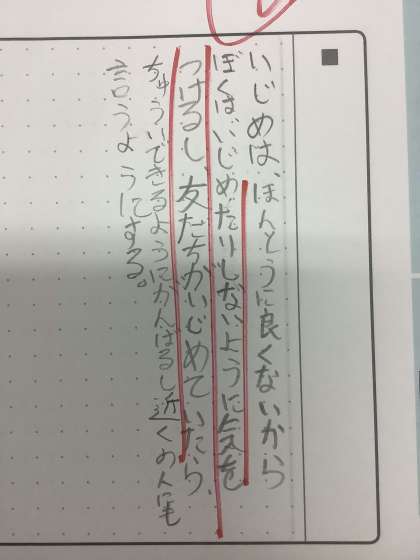 いじめは、ほんとうに良くないから
ぼくはいじめたりしないように気を
つけるし、友だちがいじめていたら、
ちゅういできるようにがんばるし近くの人にも
言うようにする。